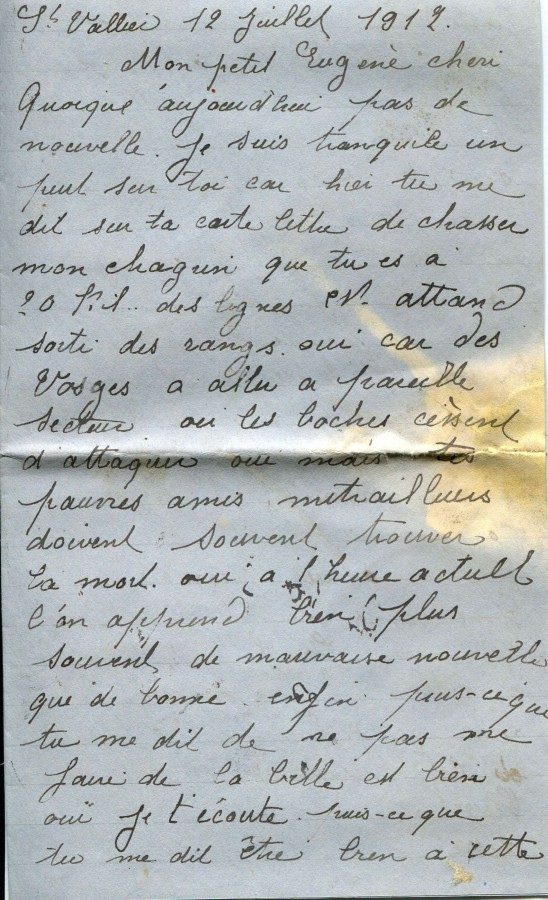 St Vallier 12 Juillet 1917.
Mon petit Eugène cheri
Quoique aujourd'hui pas de
nouvelle. Je suis tranquile un
peut sur toi car hier tu me
dit sur ta carte lettre de chasser
mon chagrin que tu es à
20 Kil. des lignes et attand
sorti des rangs. oui car des
Vosges a allu a pareille
secteur ou les boches cèssent
d'attaquer oui mais tes
pauvres amis mitrailleurs
doivent souvent trouver
la mort. oui a l'heure actuelle
l'on apprend bien plus
souvent de mauvaise nouvelle
que de bonne. enfin puis-ce que
tu me dit de ne pas me
faire de la bille est bien
oui je t'écoute. puis-ce que
tu me dit être bien à cette